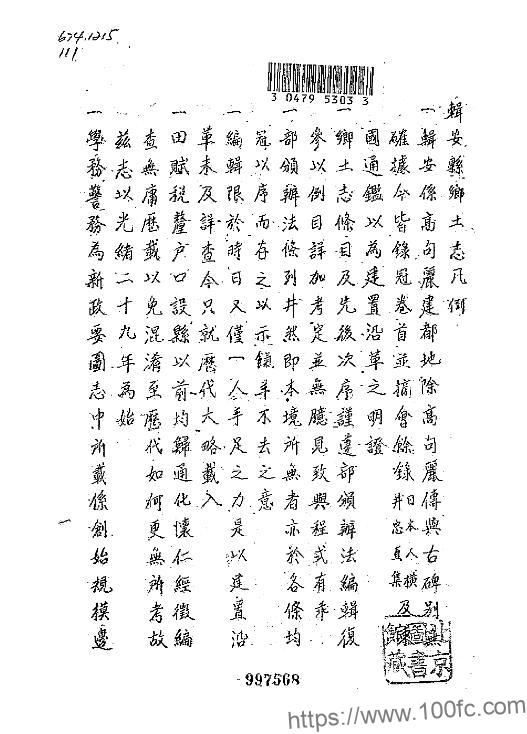 674.1215
111
3 0479 5303 3
輯安縣鄉土志凡例
一輯安係高句麗建都地除高句麗傳與古碑別無
確據今皆錄冠卷首並摘會餘錄日本人橫井忠直集及
國通鑑以為建置沿革之明證
一鄉土志條目及先後次序謹遵部頒辦法編輯復
參以例目詳加考定並無臆見致與程式有乖
一部頒辦法條列井然即本境所無者亦於各條均
冠以序而存之以示餼羊不去之意
一編輯限於時日又僅一人手足之力是以建置沿
革未及詳查今只就歷代大略載入
一田賦稅釐戶口設縣以前均歸通化懷仁經徵編
查無庸歷載以免混淆至歷代如何更無所考故
茲志以光緒二十九年為始
一學務警務為新政要圖志中所載係創始規模邊
京圖書館藏
997568
https://www.100fc.com